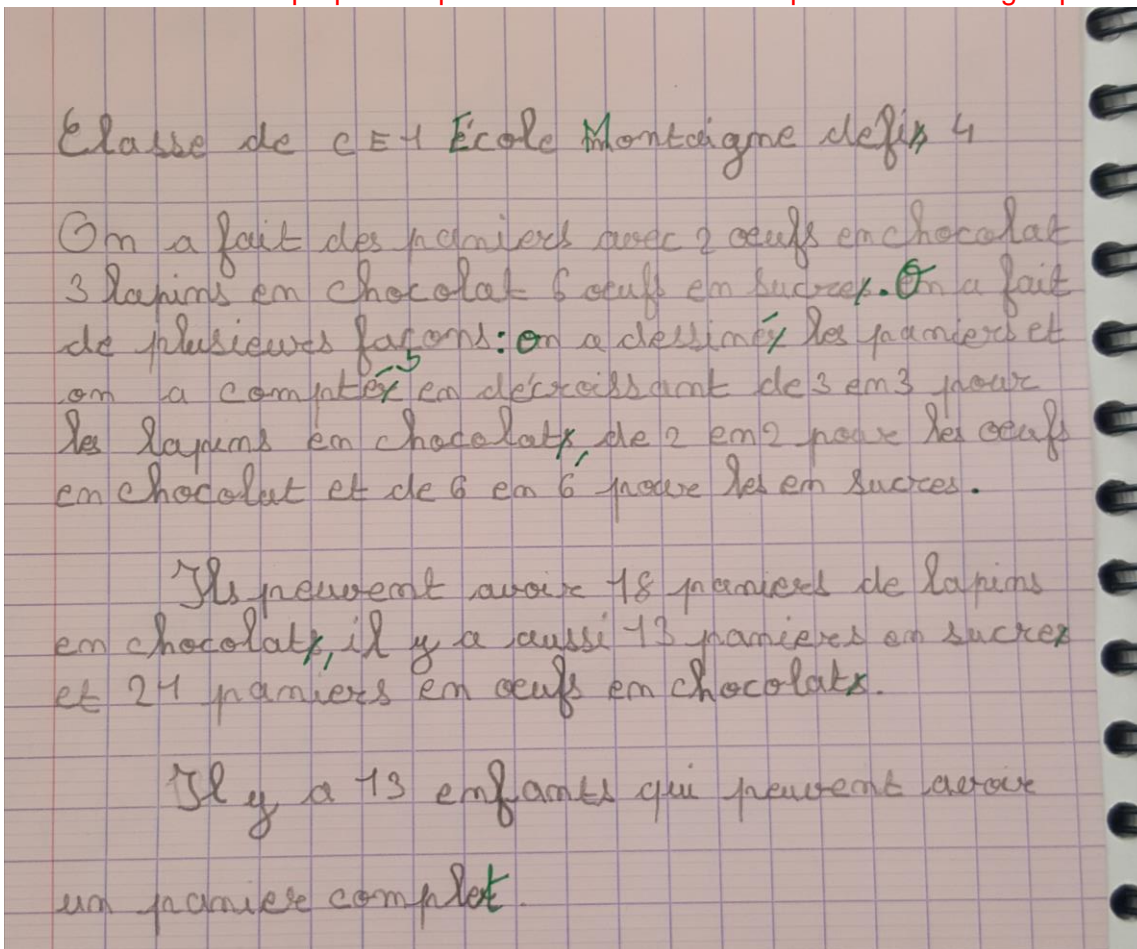 Classe de CE1 École Montaigne defis 4
On a fait des paniers avec 2 oeufs en chocolat
3 lapins en chocolat 6 oeufs en sucre. On a fait
de plusieurs façons : on a dessiné les paniers et
on a compté en décroissant de 3 en 3 pour
les lapins en chocolat, de 2 en 2 pour les oeufs
en chocolat et de 6 en 6 pour les en sucres.
Ils peuvent avoir 18 paniers de lapins
en chocolat, il y a aussi 13 paniers en sucre
et 21 paniers en oeufs en chocolat.
Il y a 13 enfants qui peuvent avoir
un panier complet.